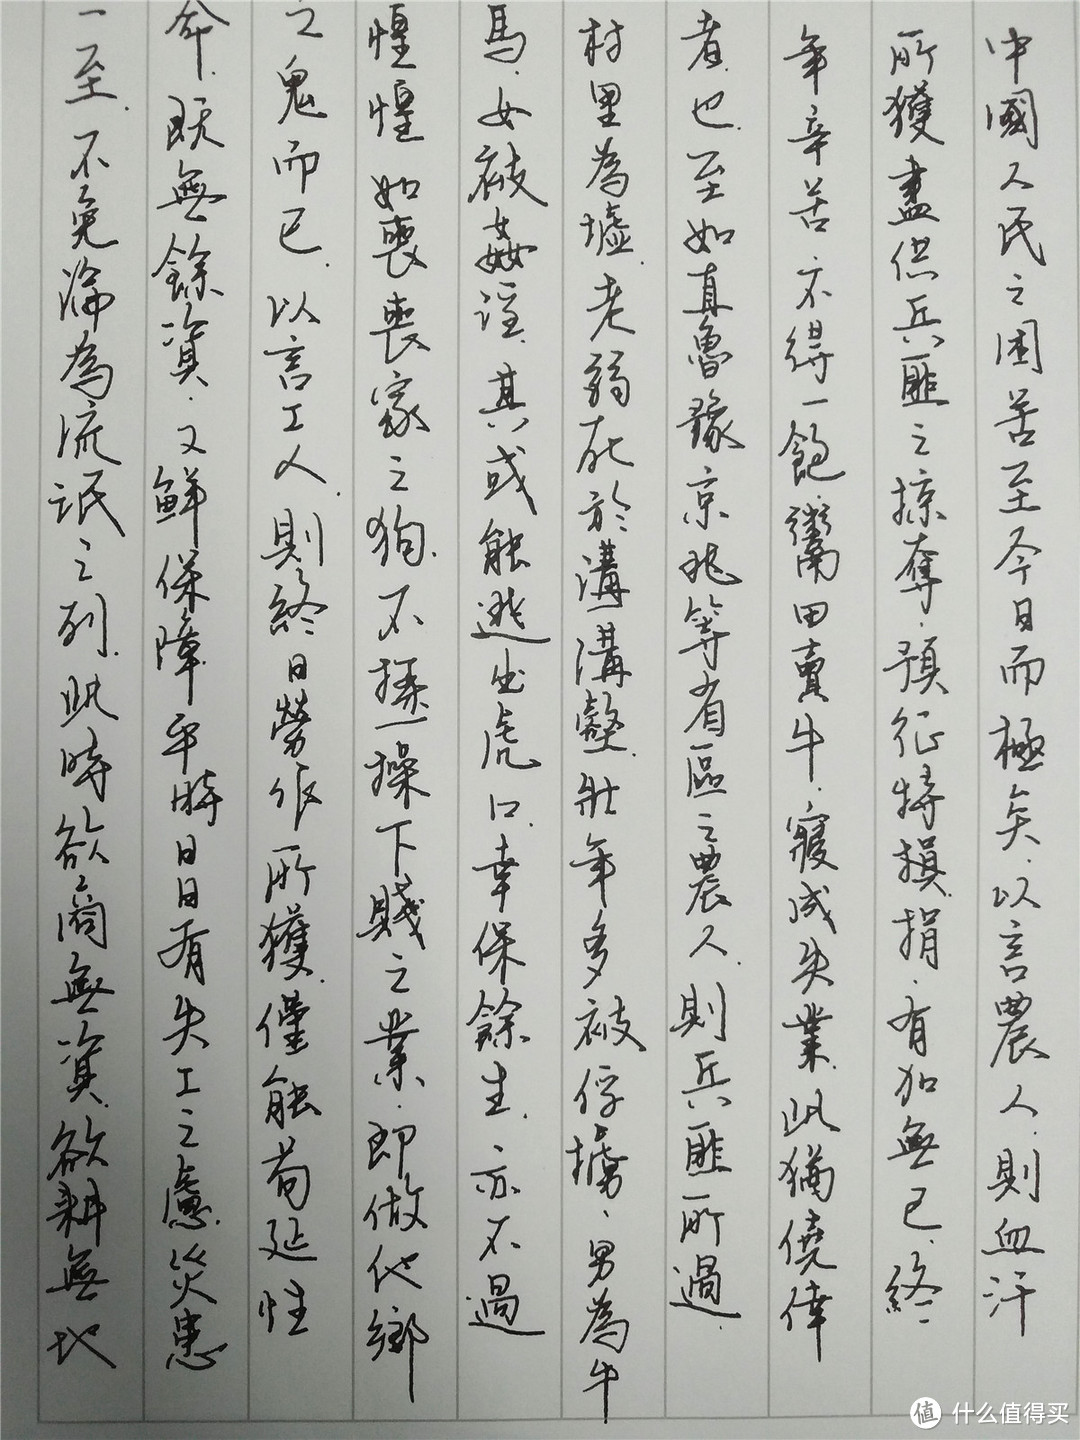 中國人民之困苦至今日而極矣.以言農人.則血汗
所獲盡供兵匪之掠奪.預征特損捐.有加無已.終
年辛苦不得一飽.鬻田賣牛.寖成失業.此猶僥倖
者也.至如直魯豫京兆等省區之農人.則兵匪所過.
村里為墟.老弱死於溝溝壑.壯年多被俘擄.男為牛
馬.女被姦淫.其或能逃出虎口.幸保餘生.亦不過
惶惶如喪喪家之狗.不操操下賤之業.即做他鄉
之鬼而已.以言工人.則終日勞作所獲.僅能苟延性
命.既無餘資.又鮮保障.平時日日有失工之慮.災患
一至.不免淪為流氓之列.此時欲商無資.欲耕無地
值 什么值得买